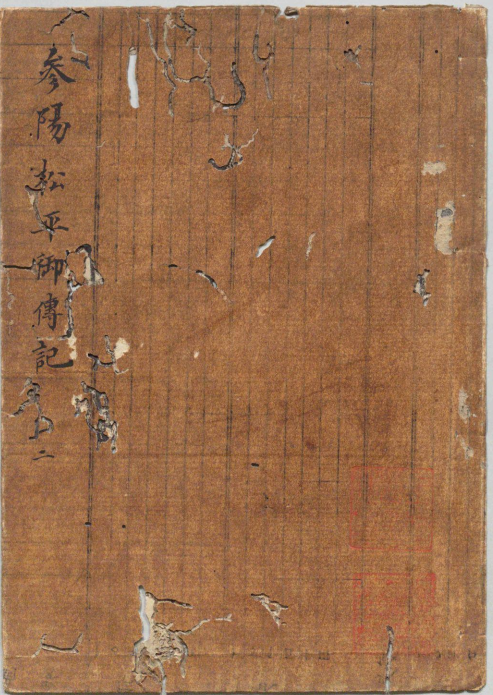 参陽松平御傳記 二